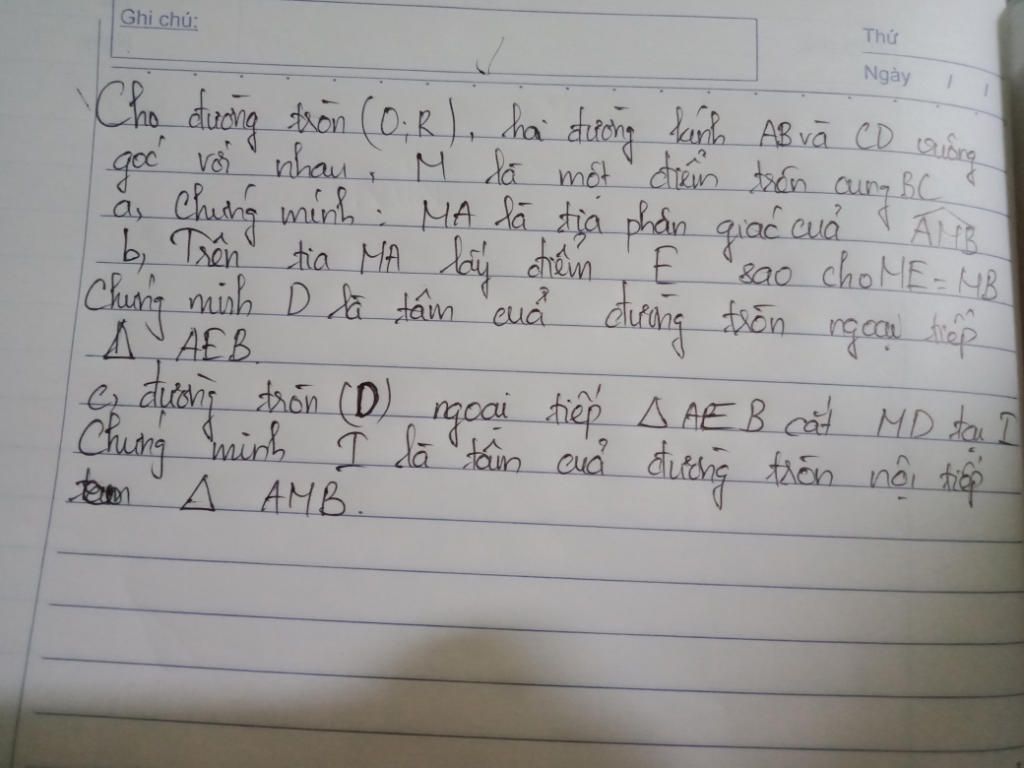 Ghi chú:
Thứ
Ngày / /
Cho đường tròn (O;R), hai đường kính AB và CD vuông
góc với nhau, M là một điểm trên cung BC
a, Chứng minh: MA là tia phân giác của AMB
b, Trên tia MA lấy điểm E sao cho ME = MB
Chứng minh D là tâm của đường tròn ngoại tiếp
Δ AEB.
c, đường tròn (D) ngoại tiếp Δ AEB cắt MD tại I
Chứng minh I là tâm của đường tròn nội tiếp
Δ AMB.